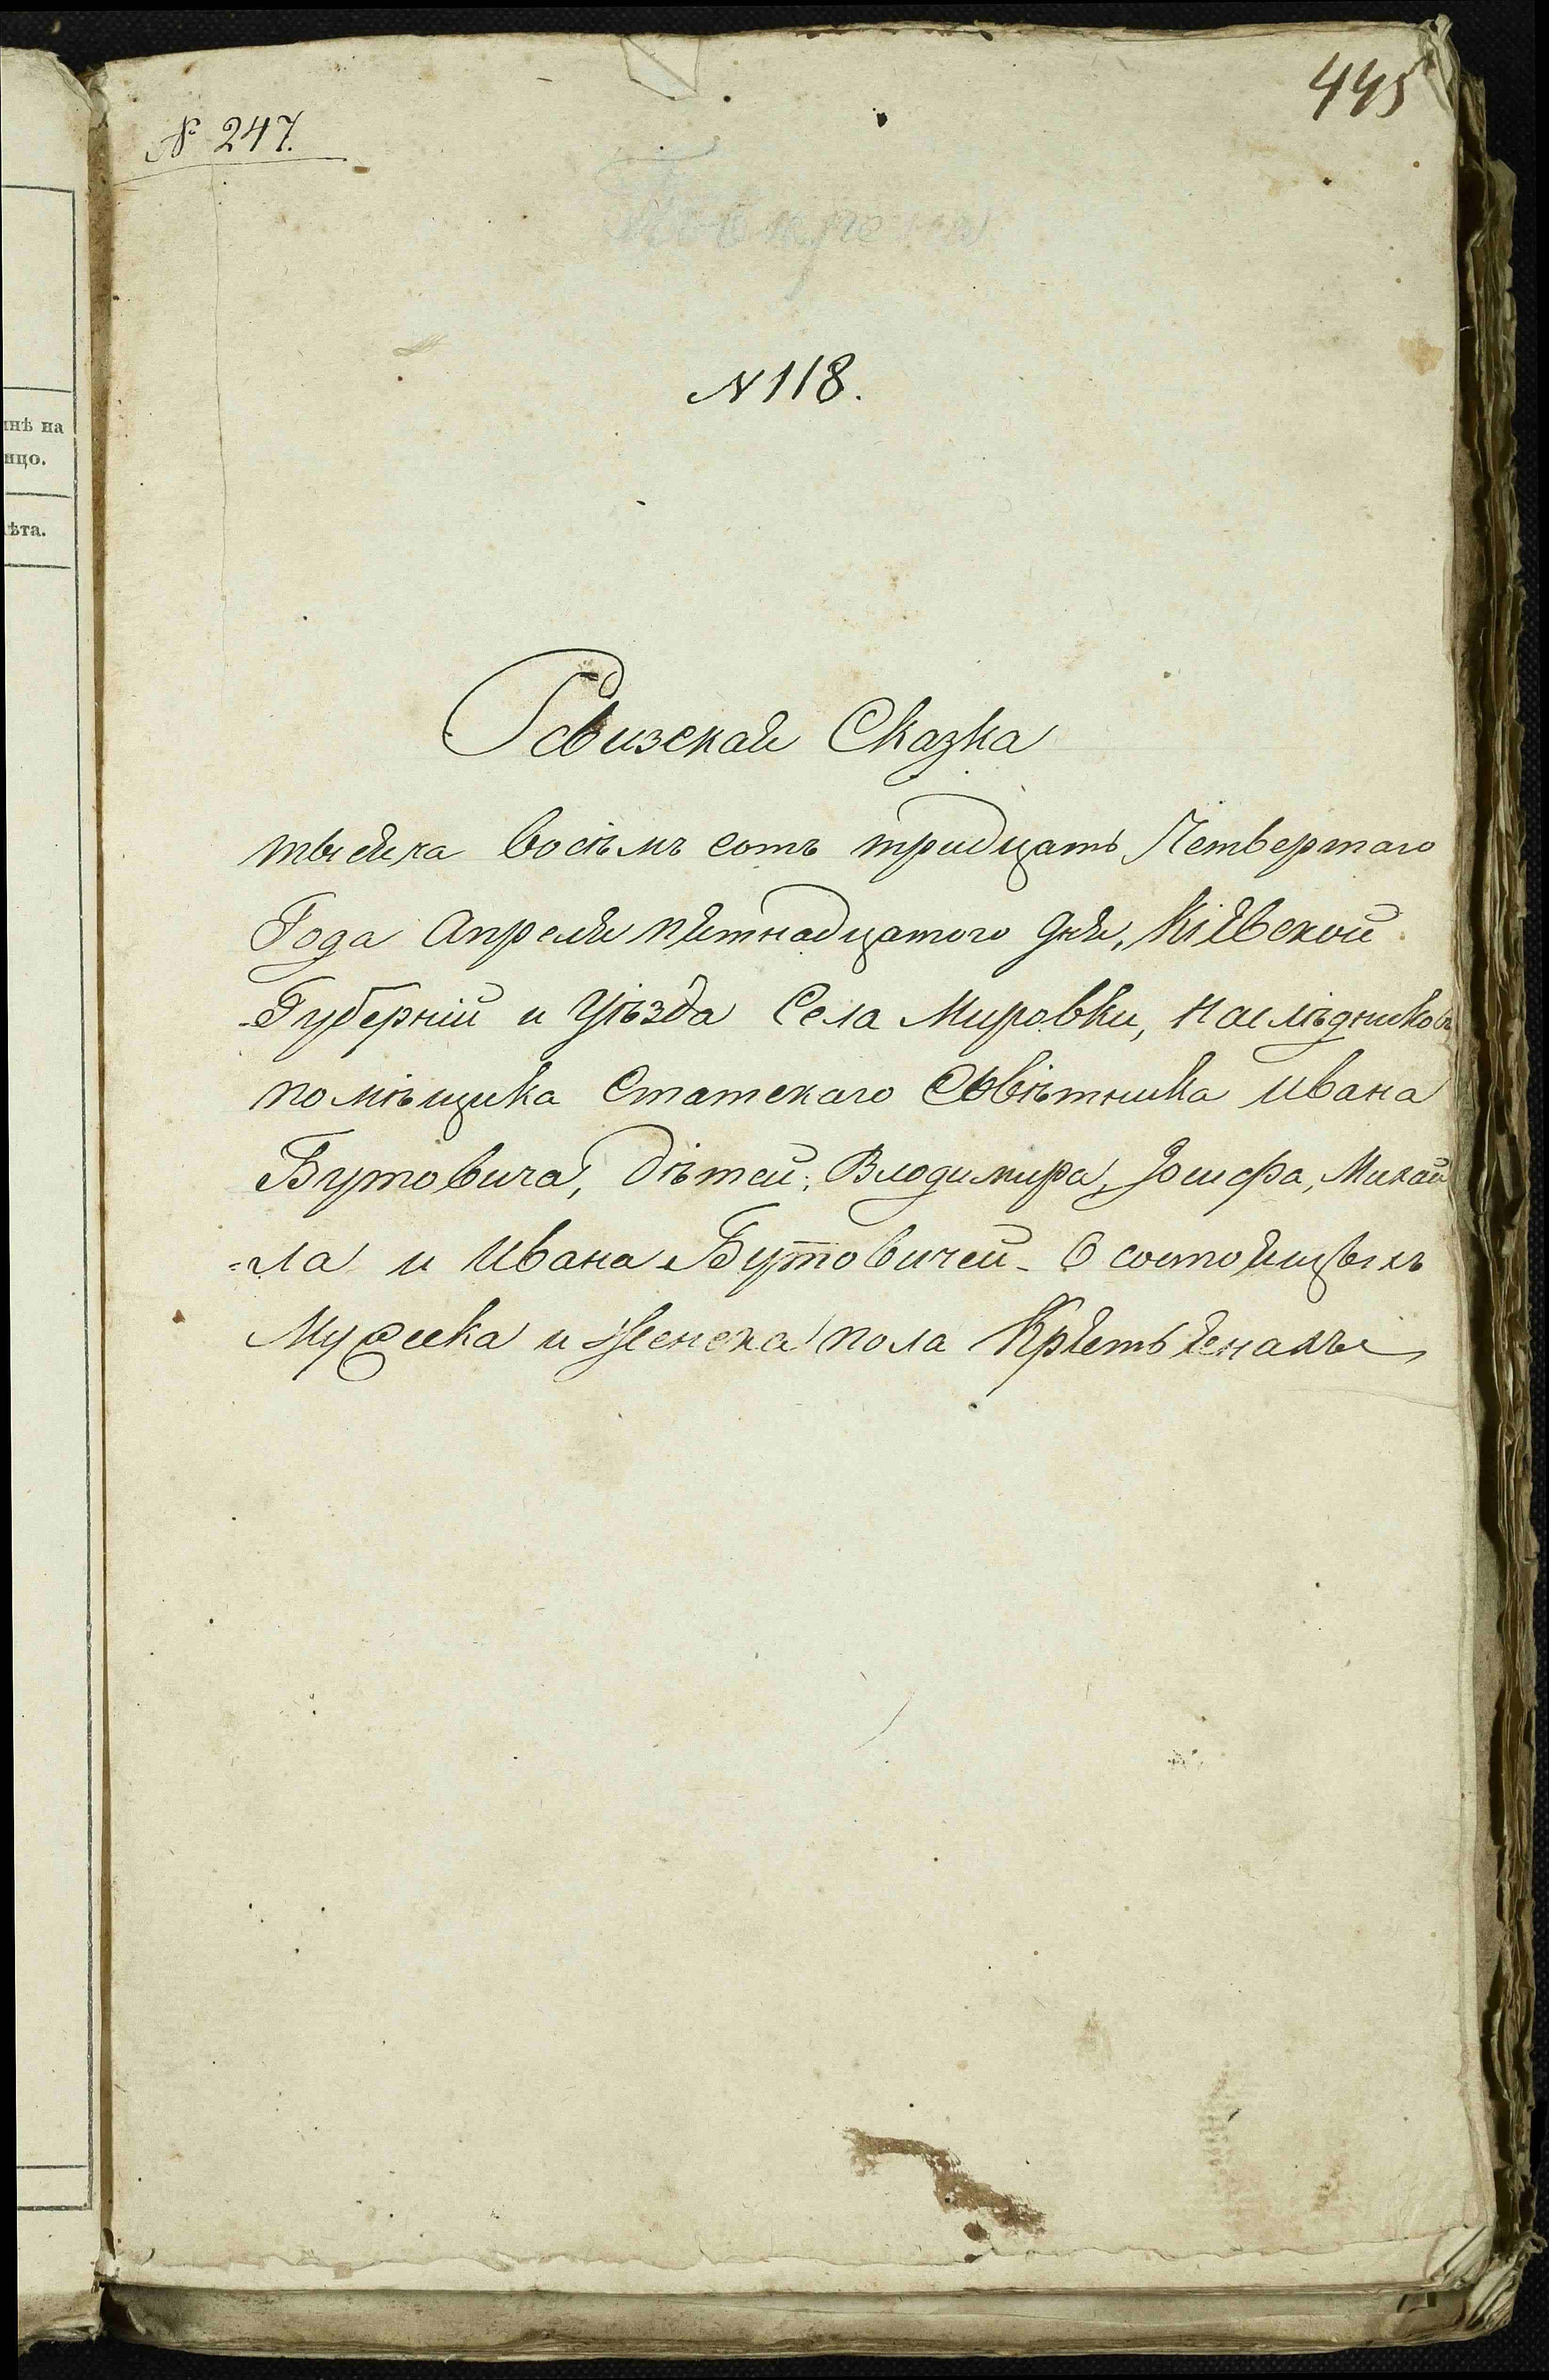 445
№ 247.
N 118.
Ревизская Сказка
тысяча восѣмъ сотъ тридцать Четвертаго
Года Апреля пятнадцатого дня, Кіевской
Губерніи и Уѣзда Села Мировки, наслѣдниковъ
помѣщика Статскаго Совѣтника Ивана
Бутовича, дѣтей: Владимира, Іосифа, Михаи
=ла и Ивана Бутовичей О состоящихъ
Мужеска и Женска пола Крестьянахъ
инѣ на
ицо.
ѣта.